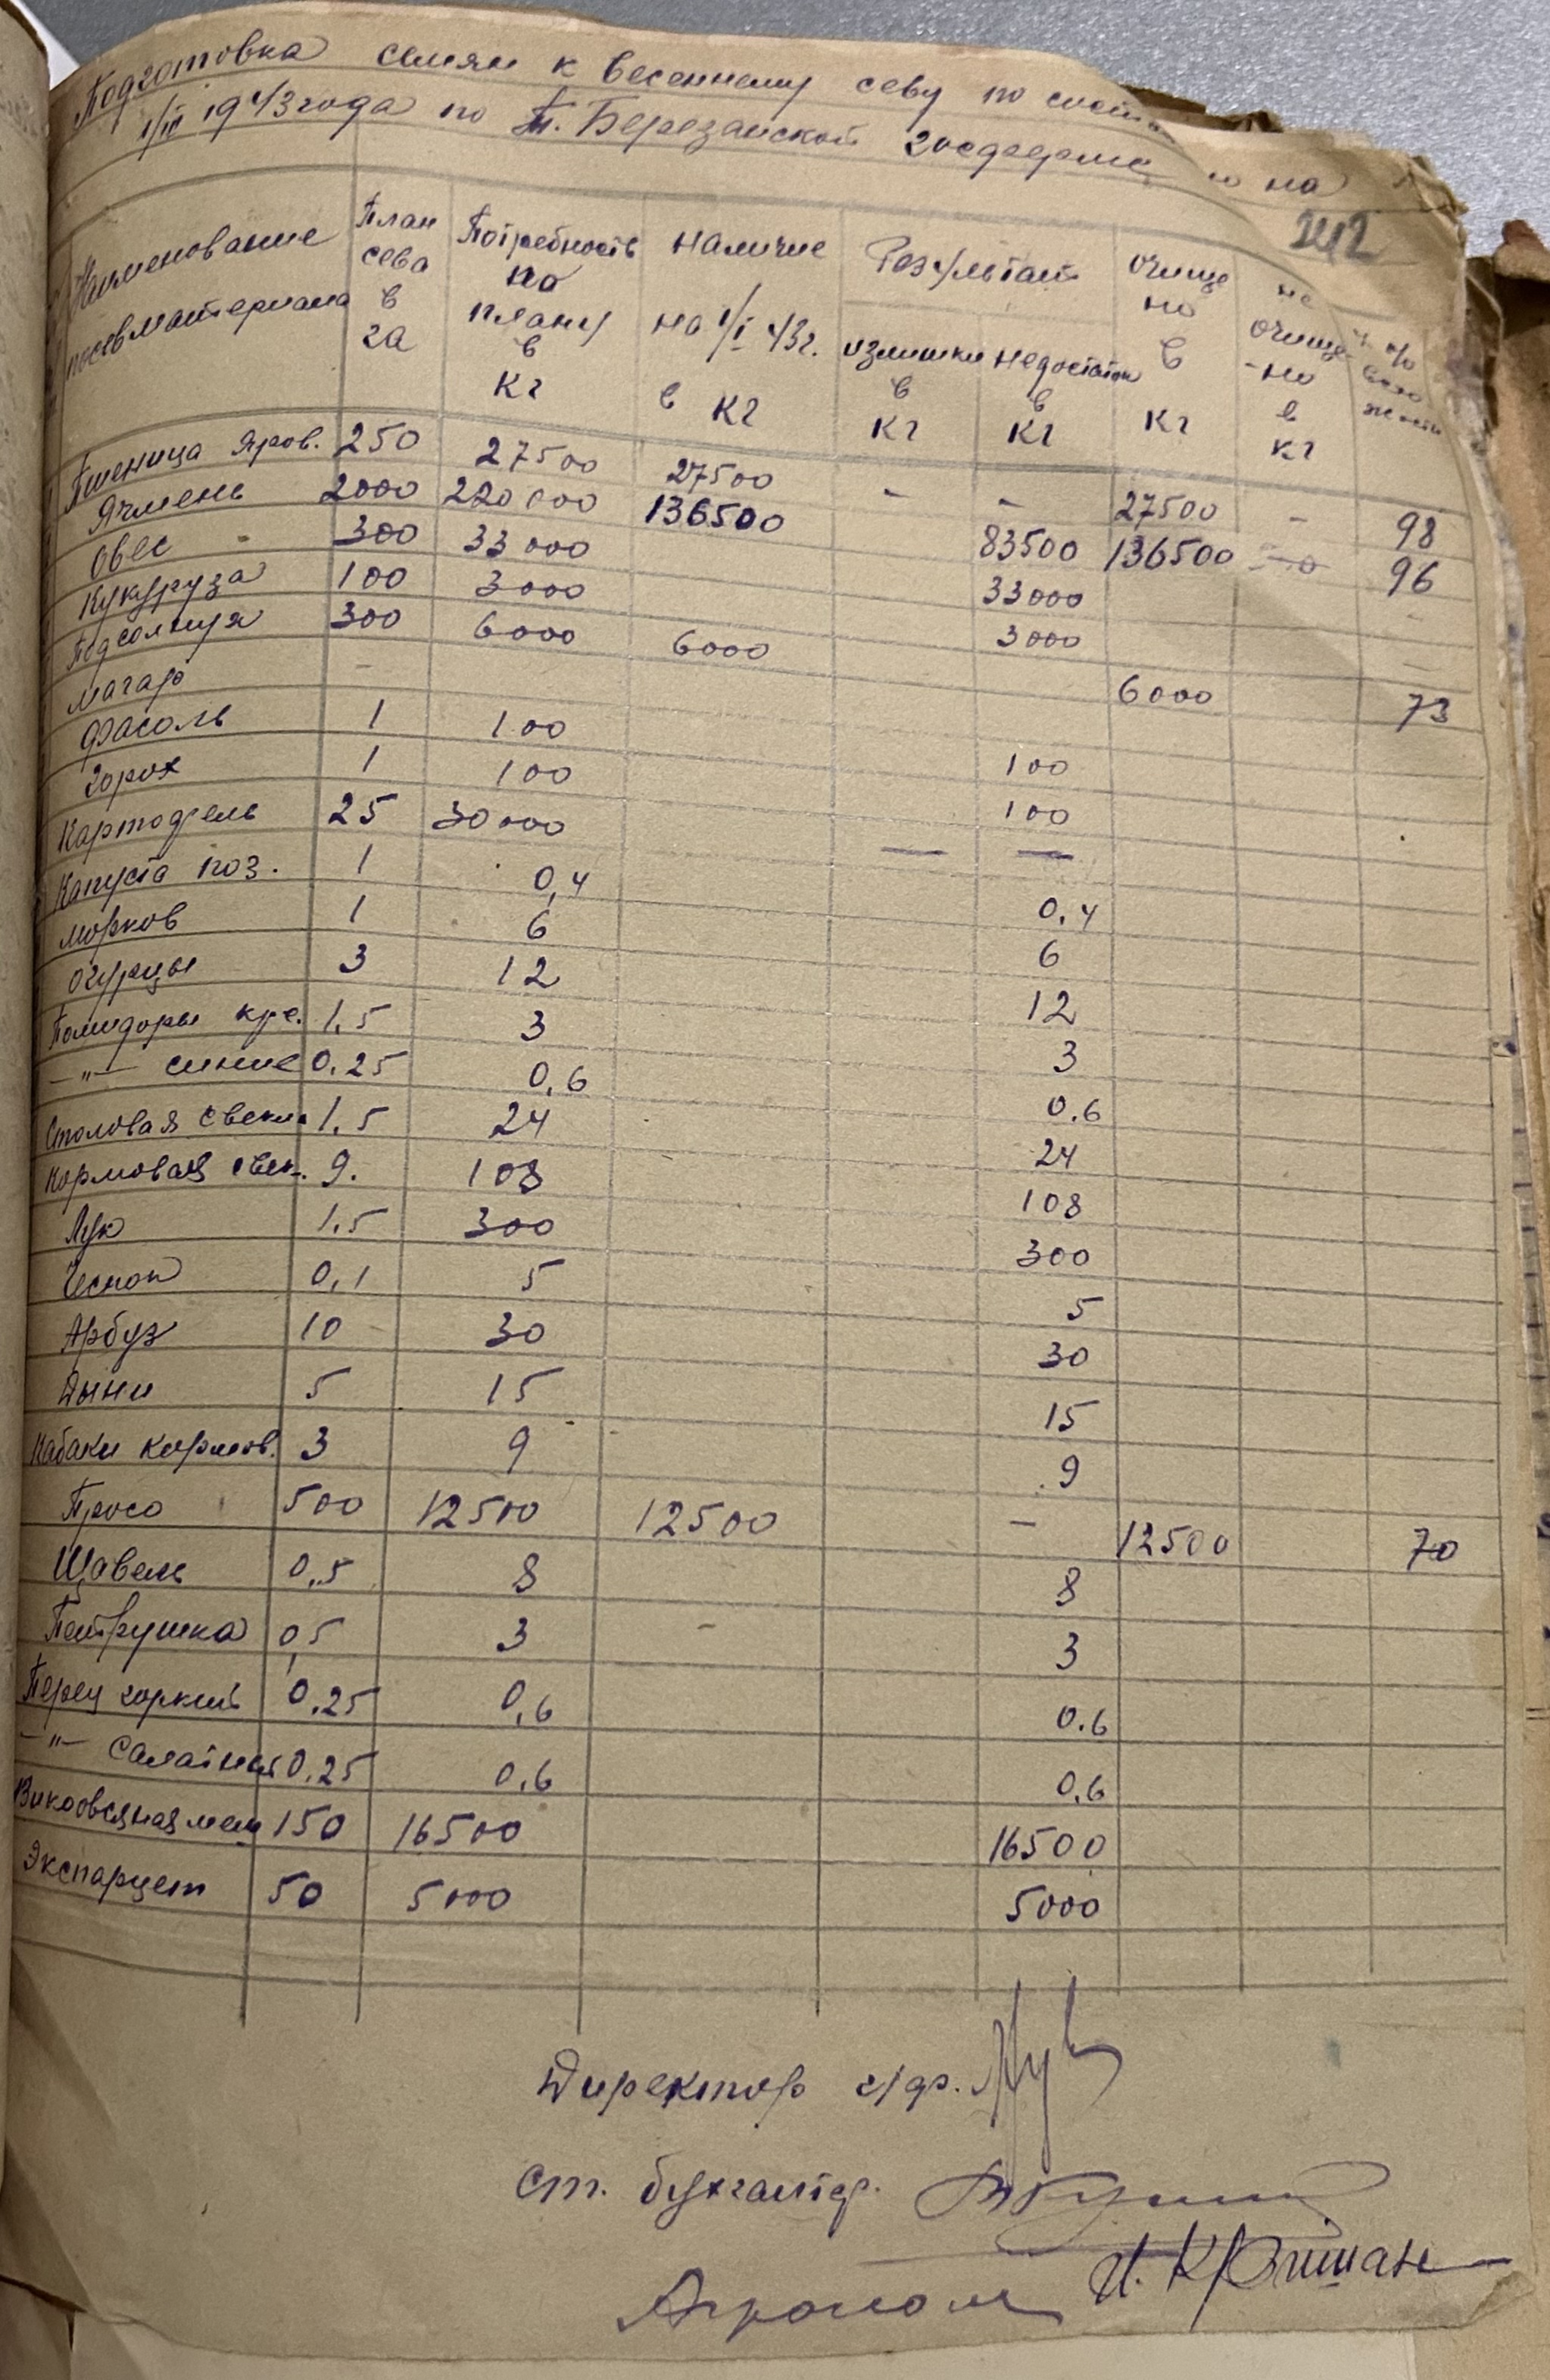 Подготовка семян к весеннему севу по состо
1/III 1943 года по Т. Березанской госферме ю на
242
Наименование посевматериала | План сева в га | Потребность по плану в кг | Наличие на 1/I 43г. в кг | Результат излишки в кг | недостаток в кг | очище но в кг | не очище- -но в кг | % всхо жести
Пшеница яров. 250 27500 27500 - - 27500 - 98
Ячмень 2000 220000 136500 83500 136500 96
Овес - 300 33000 33000 -
Кукуруза 100 3000 3000 -
Подсолнух 300 6000 6000 6000 73
Магар -
Фасоль 1 100 100
Горох 1 100 100
Картофель 25 30000 — —
Капуста поз. 1 0,4 0.4
Морков 1 6 6
Огурцы 3 12 12
Помидоры кра. 1.5 3 3
—"— синие 0.25 0.6 0.6
Столовая свекла 1.5 24 24
Кормовая свек. 9. 108 108
Лук 1.5 300 300
Чеснок 0,1 5 5
Арбуз 10 30 30
Дыни 5 15 15
Кабаки кормов. 3 9 9
Просо 500 12500 12500 - 12500 70
Щавель 0,5 8 8
Петрушка 0,5 3 - 3
Перец горкий 0.25 0.6 0.6
—"— салатный 0.25 0.6 0.6
Викоовсяная меш 150 16500 16500
Экспарцет 50 5000 5000
Директор г/ф.
Ст. бухгалтер.
Агроном И. Кришан